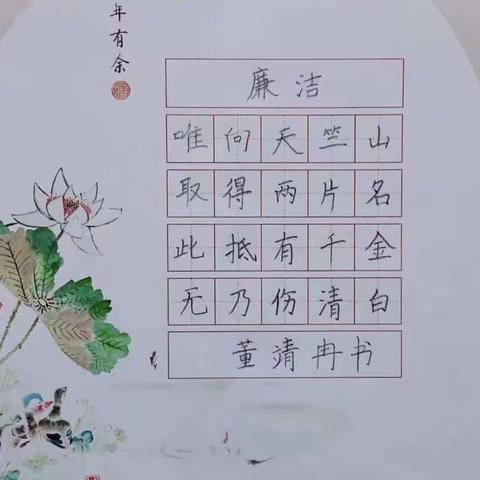 年有余
廉洁
唯向天竺山
取得两片名
此抵有千金
无乃伤清白
董靖冉书